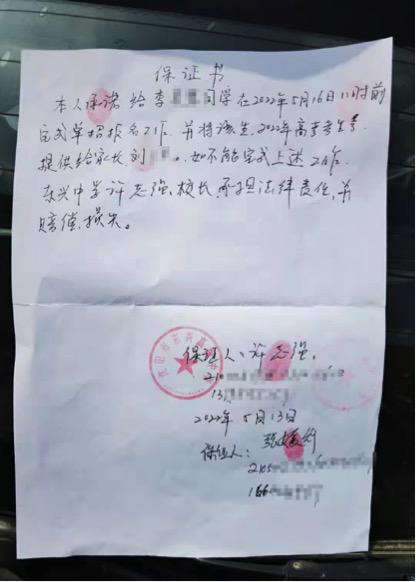 保证书
本人承诺给李 同学在2022年5月16日11时前
完成单招报名工作，并将该生2022年高考考生号
提供给家长刘 。如不能完成上述工作，
东兴中学许志强校长承担法律责任，并
赔偿损失。
保证人：许志强。
210
13
2022年5月13日
保证人：
210
166